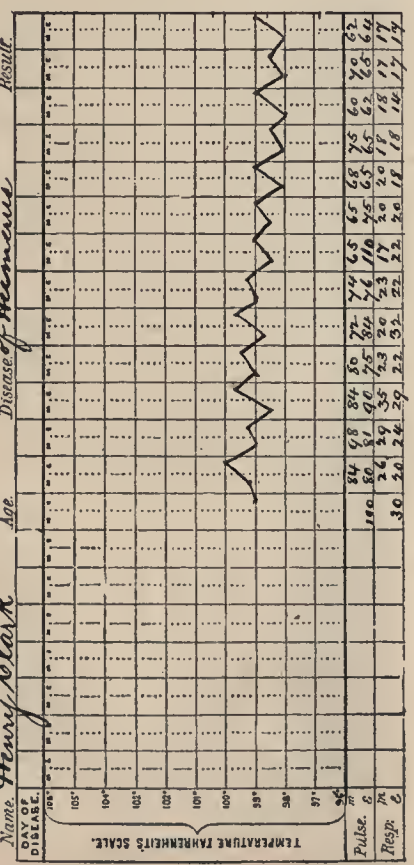 Name. Henry Clark Age. Disease. of Humerus Result.
DAY OF DISEASE.
TEMPERATURE FAHRENHEIT'S SCALE.
106°
105°
104°
103°
102°
101°
100°
99°
98°
97°
96°
Pulse. m 84 98 84 80 72 74 65 65 68 75 60 70 62
E 100 80 81 90 75 84 76 110 75 65 65 62 65 64
Resp: m 26 29 35 23 20 23 17 20 20 18 18 17 17
E 30 20 24 29 22 32 22 22 20 18 18 14 17 14